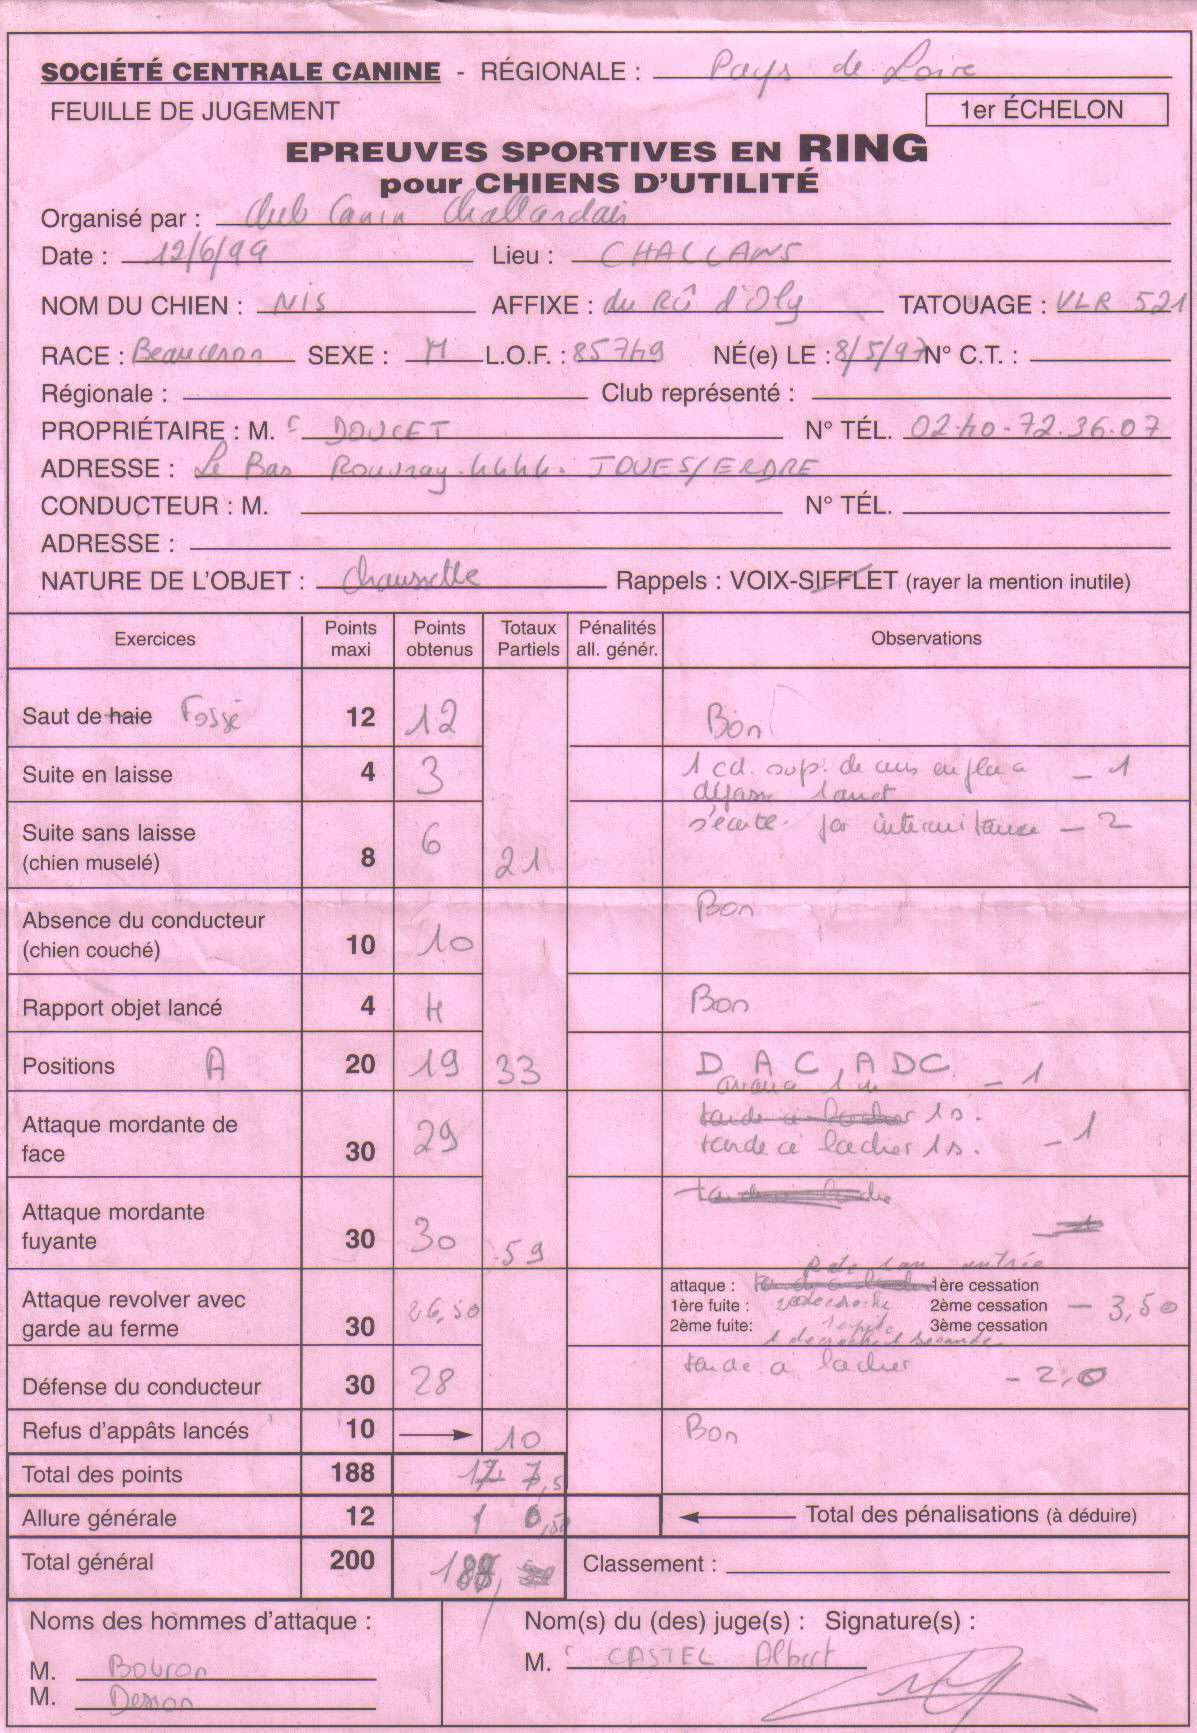 SOCIÉTÉ CENTRALE CANINE - RÉGIONALE : Pays de Loire
FEUILLE DE JUGEMENT
1er ÉCHELON
EPREUVES SPORTIVES EN RING
pour CHIENS D'UTILITÉ
Organisé par : Club Canin Challandais
Date : 12/6/99 Lieu : CHALLANS
NOM DU CHIEN : Nis AFFIXE : du Rû d'Oly TATOUAGE : VLR 521
RACE : Beauceron SEXE : M L.O.F. : 85749 NÉ(e) LE : 8/5/97 N° C.T. :
Régionale : Club représenté :
PROPRIÉTAIRE : M. DOUCET N° TÉL. 02.40-72.36.07
ADRESSE : Le Bas Rouvray. 4444. JOUES/ERDRE
CONDUCTEUR : M. N° TÉL.
ADRESSE :
NATURE DE L'OBJET : Chaussette Rappels : VOIX-SIFFLET (rayer la mention inutile)
Exercices Points maxi Points obtenus Totaux Partiels Pénalités all. génér. Observations
Saut de haie Fossé 12 12 Bon
Suite en laisse 4 3 1 cd. sup. de - 1
Suite sans laisse
(chien muselé) 8 6 21 s'écarte par intermitance - 2
Absence du conducteur
(chien couché) 10 10 Bon
Rapport objet lancé 4 4 Bon
Positions A 20 19 33 D A C, A D C. - 1
Attaque mordante de
face 30 29 tarde à lacher 1s. - 1
Attaque mordante
fuyante 30 30 59
Attaque revolver avec
garde au ferme 30 26,50 - 3,50
attaque : 1ère cessation
1ère fuite : 2ème cessation
2ème fuite: 3ème cessation
Défense du conducteur 30 28 tarde à lacher - 2,0
Refus d'appâts lancés 10 10 Bon
Total des points 188 177,5
Allure générale 12 Total des pénalisations (à déduire)
Total général 200 188, Classement :
Noms des hommes d'attaque : Nom(s) du (des) juge(s) : Signature(s) :
M. Bouron M. CASTEL Albert
M. Desson